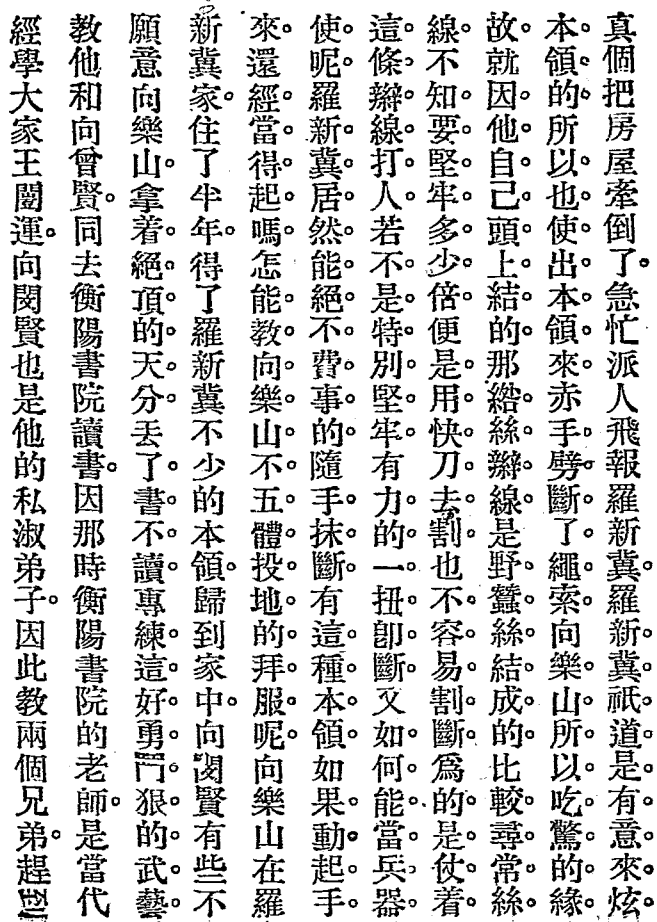 真個把房屋牽倒了。急忙派人飛報羅新冀。羅新冀祇道是有意來炫
本領的。所以也使出本領來。赤手劈斷了繩索。向樂山所以吃驚的緣
故。就因他自己頭上結的那綹絲辮線。是野蠶絲結成的。比較尋常絲
線。不知要堅牢多少倍。便是用快刀去割。也不容易割斷。爲的是仗着
這條辮線打人。若不是特別堅牢有力的。一扭卽斷。又如何能當兵器
使呢。羅新冀居然能絕不費事的隨手抹斷。有這種本領。如果動起手
來。還經當得起嗎。怎能教向樂山不五體投地的拜服呢。向樂山在羅
新冀家。住了半年。得了羅新冀不少的本領。歸到家中。向閔賢有些不
願意向樂山。拿着絕頂的天分。丟了書不讀。專練這好勇鬥狠的武藝。
教他和向曾賢。同去衡陽書院讀書。因那時衡陽書院的老師。是當代
經學大家王闓運。向閔賢也是他的私淑弟子。因此教兩個兄弟。趕到